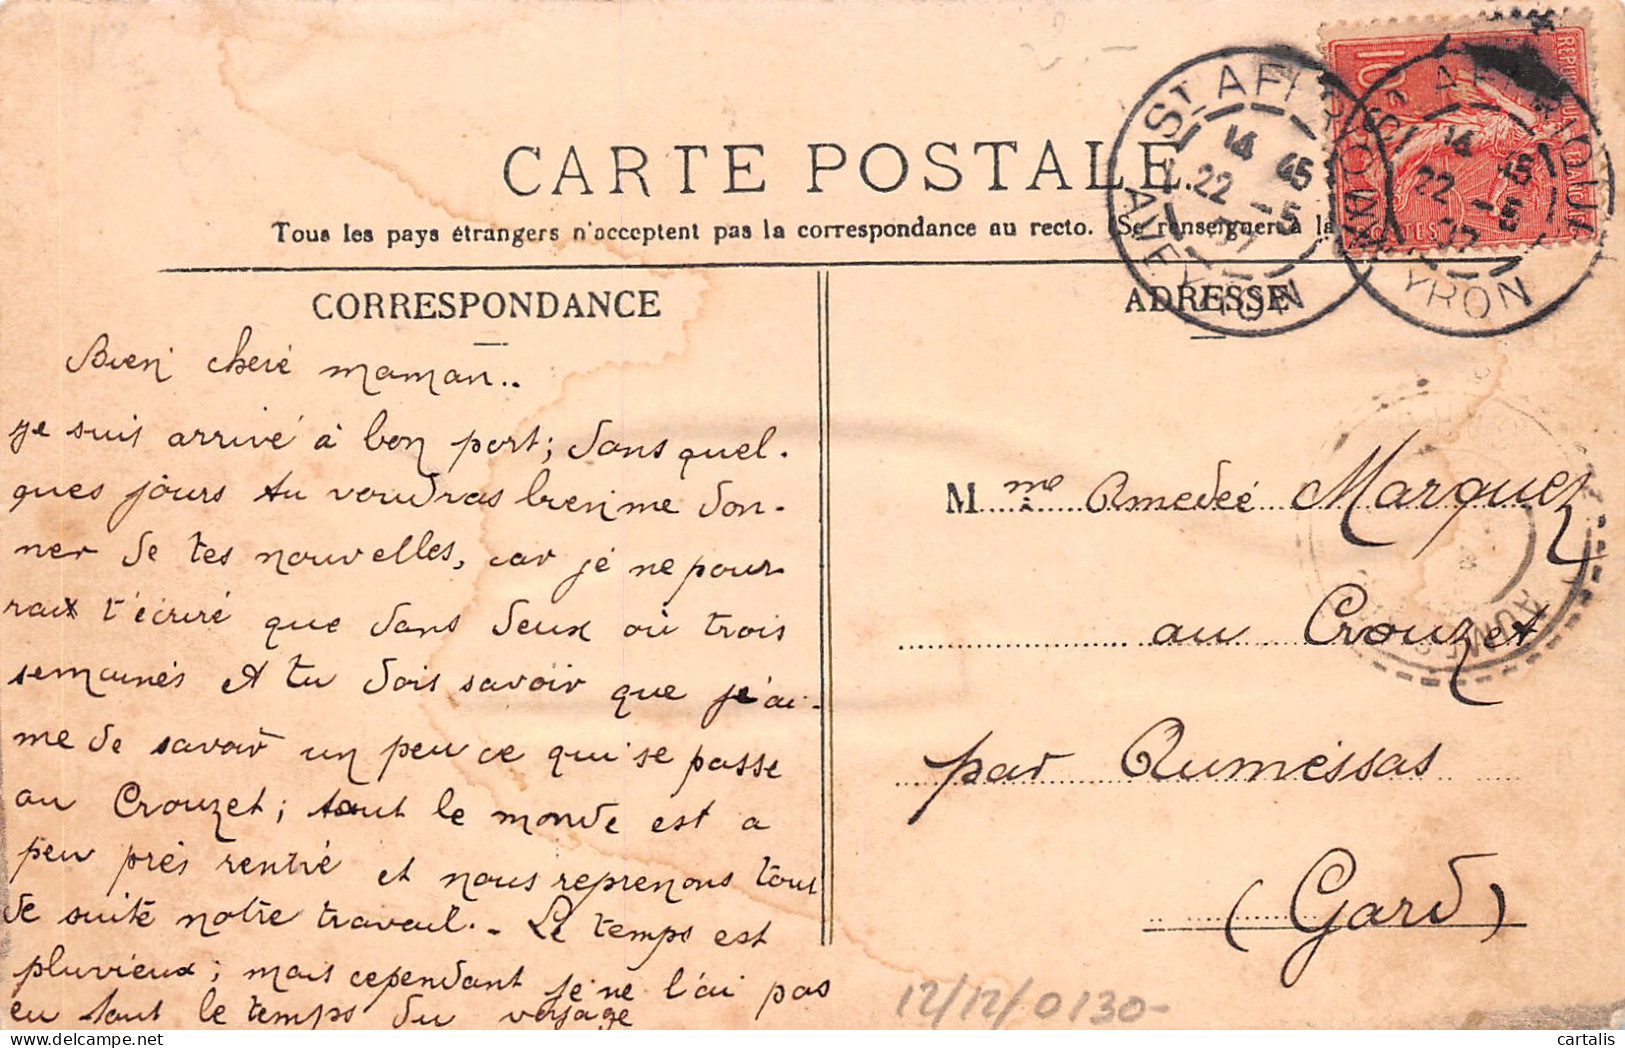 CARTE POSTALE
Tous les pays étrangers n'acceptent pas la correspondance au recto. (Se renseigner à la
CORRESPONDANCE
Bien cheré maman..
je suis arrivé à bon port; dans quel-
ques jours tu voudras bien me don-
ner de tes nouvelles, car je ne pour
rait t'écriré que dans deux ou trois
semainés Et tu dois savoir que j'ai-
me de savoir un peu ce qui se passe
au Crouzet; tout le monde est a
peu prés rentré et nous reprenons tout
de suite notre travail.- Le temps est
pluvieux; mais cependant je ne l'ai pas
eu tout le temps du voyage
ADRESSE
Mme Amedeé Marquez
au Crouzet
par Aumessas
(Gard)
ST AFFRIQUE
14 45
22 -5
07
AVEYRON
ST AFFRIQUE
14 45
22 -5
07
AVEYRON
10c
REPUBLIQUE FRANÇAISE
POSTES
AUMESSAS
12/12/0130-
cartalis